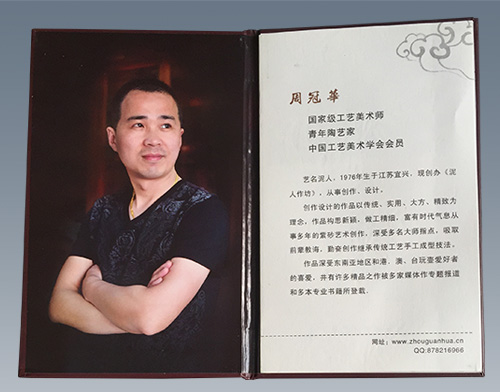 周冠華
国家级工艺美术师
青年陶艺家
中国工艺美术学会会员
艺名泥人，1976年生于江苏宜兴，现创办《泥
人作坊》，从事创作、设计。
创作设计的作品以传统、实用、大方、精致为
理念，作品构思新颖，做工精细，富有时代气息从
事多年的紫砂艺术创作，深受多名大师指点，吸取
前辈教诲，勤奋创作继承传统工艺手工成型技法。
作品深受东南亚地区和港、澳、台玩壶爱好者
的喜爱，并有许多精品之作被多家媒体作专题报道
和多本专业书籍所登载.
网址：www.zhouguanhua.cn
QQ:878216966